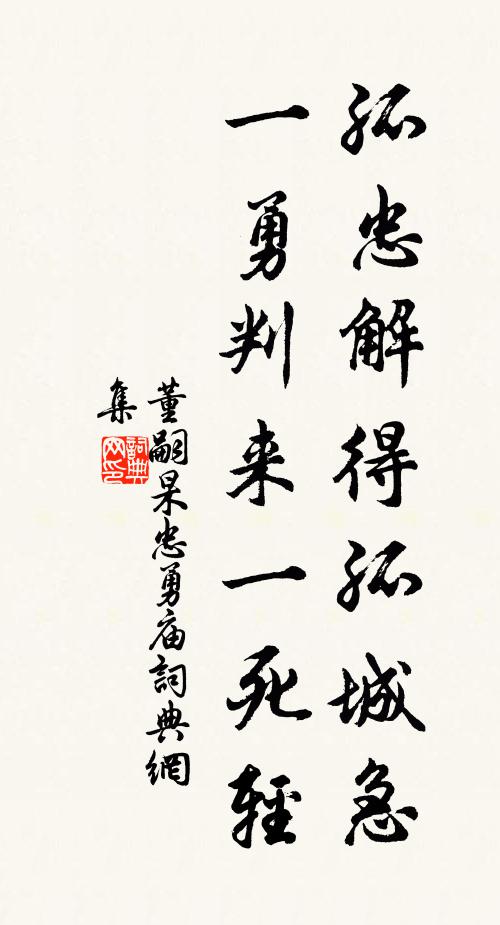 孤忠解得孤城急
一勇判来一死輕
董嗣杲忠勇庙詞典網
集
詞典
网印